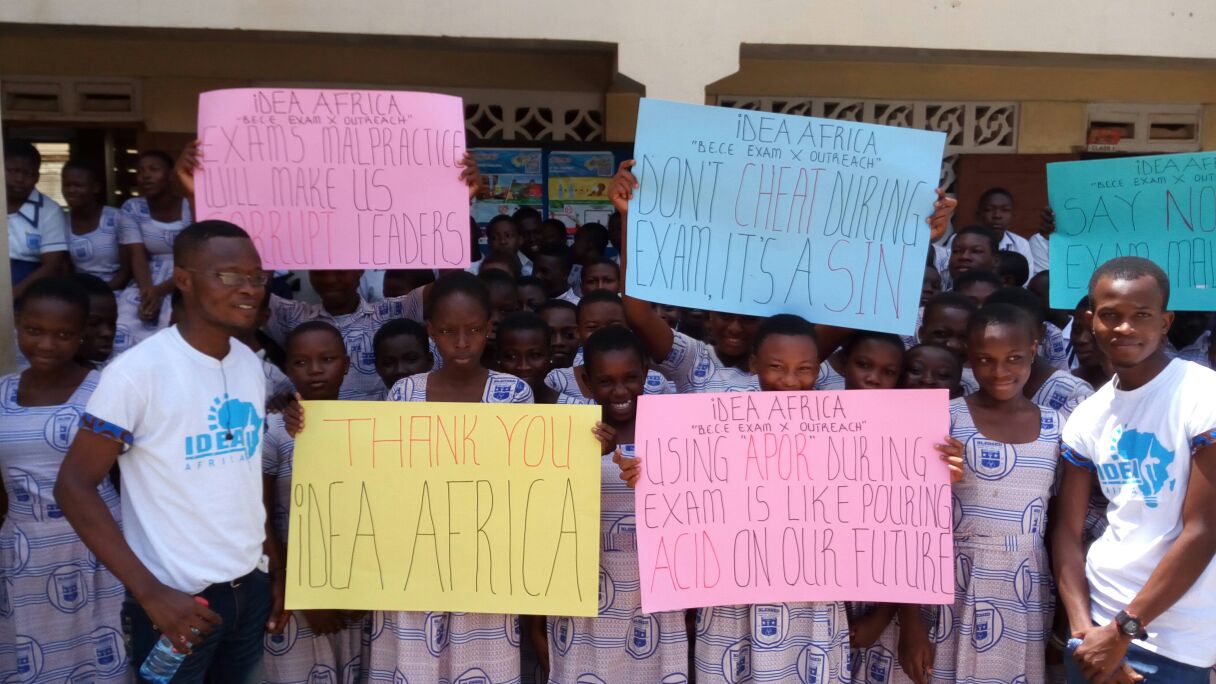 iDEA AFRICA
"B.E.C.E EXAM X OUTREACH"
EXAMS MALPRACTICE
WILL MAKE US
CORRUPT LEADERS
iDEA AFRICA
"B.E.C.E EXAM X OUTREACH"
DON'T CHEAT DURING
EXAM, IT'S A SIN
iDEA AFRICA
"B.E.C.E EXAM X OUTREACH"
SAY NO
EXAM MAL
THANK YOU
iDEA AFRICA
iDEA AFRICA
"B.E.C.E EXAM X OUTREACH"
USING "APOR" DURING
EXAM IS LIKE POURING
ACID ON OUR FUTURE
IDEA
AFRIKA
IDEA
CLASS 1